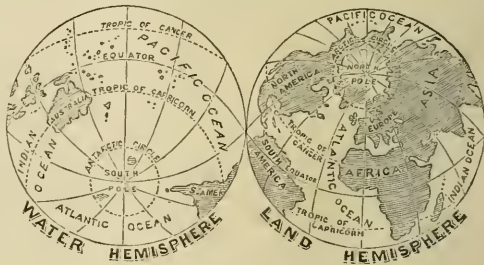 TROPIC OF CANCER
PACIFIC OCEAN
EQUATOR
TROPIC OF CAPRICORN
AUSTRALIA
INDIAN OCEAN
ANTARCTIC CIRCLE
SOUTH POLE
S. AMER
ATLANTIC OCEAN
WATER HEMISPHERE
PACIFIC OCEAN
ARCTIC CIRCLE
NORTH POLE
NORTH AMERICA
ASIA
EUROPE
TROPIC OF CANCER
ATLANTIC OCEAN
AFRICA
SOUTH AMERICA
EQUATOR
INDIAN OCEAN
TROPIC OF CAPRICORN
LAND HEMISPHERE